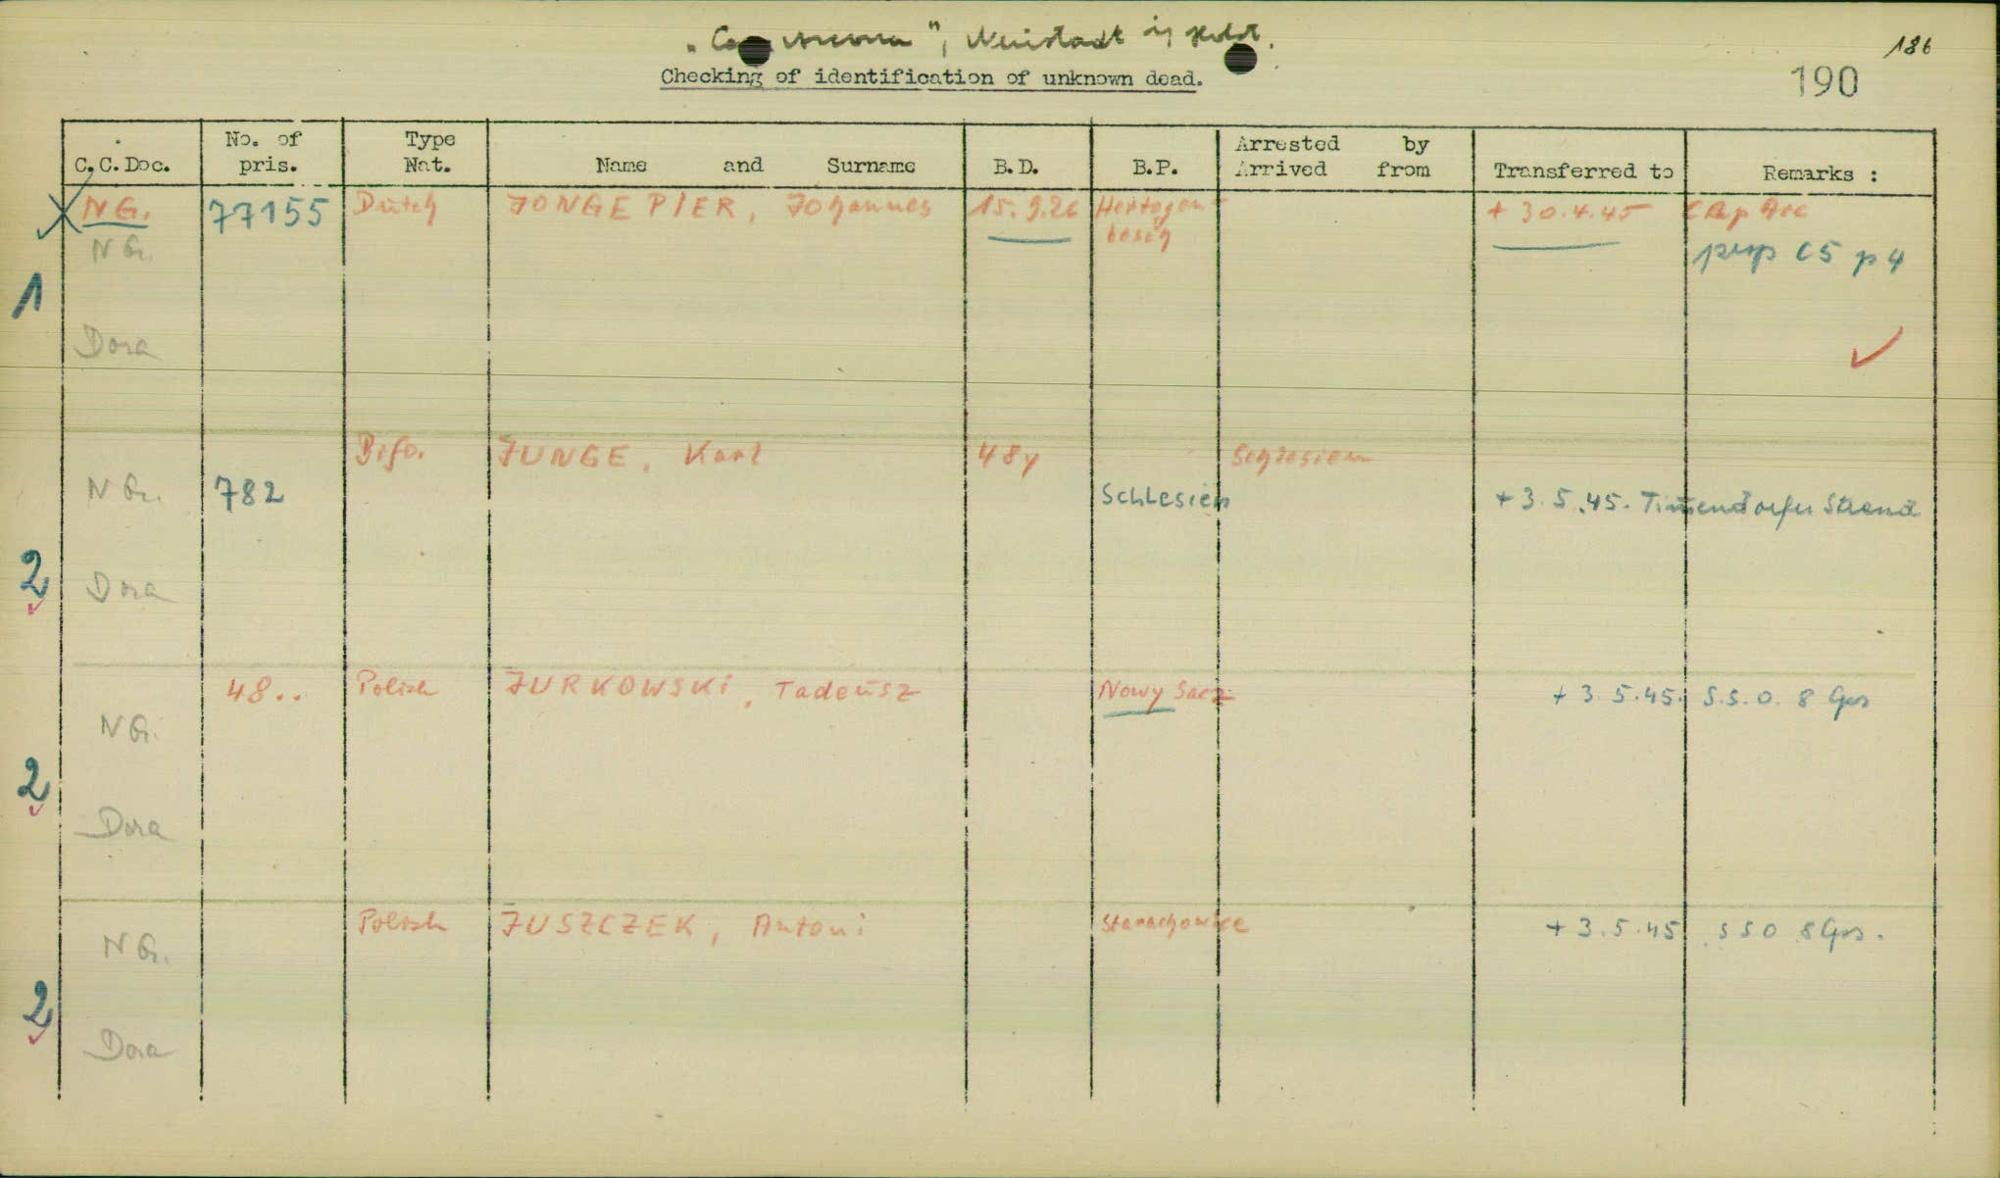 ", Neustadt i, Holst.
186
Checking of identification of unknown dead.
190
C.C.Doc. No. of pris. Type Nat. Name and Surname B.D. B.P. Arrested by Arrived from Transferred to Remarks :
NG. 77155 Dutch JONGE PIER, Johannes 15.9.26 Hertogen- + 30.4.45 Cap Arc
N G. bosch C5 p 4
1
Dora
Bifo. JUNGE, Karl 48y Schlesien
N G. 782 Schlesien + 3.5.45. Timmendorfer Strand
2 Dora
48.. Polish JURKOWSKI, Tadeusz Nowy Sacz + 3.5.45. S.S.O. 8 Gps
N G.
2
Dora
Polish JUSZCZEK, Antoni Starachowice + 3.5.45 SSO 8 Gps.
N G.
2
Dora